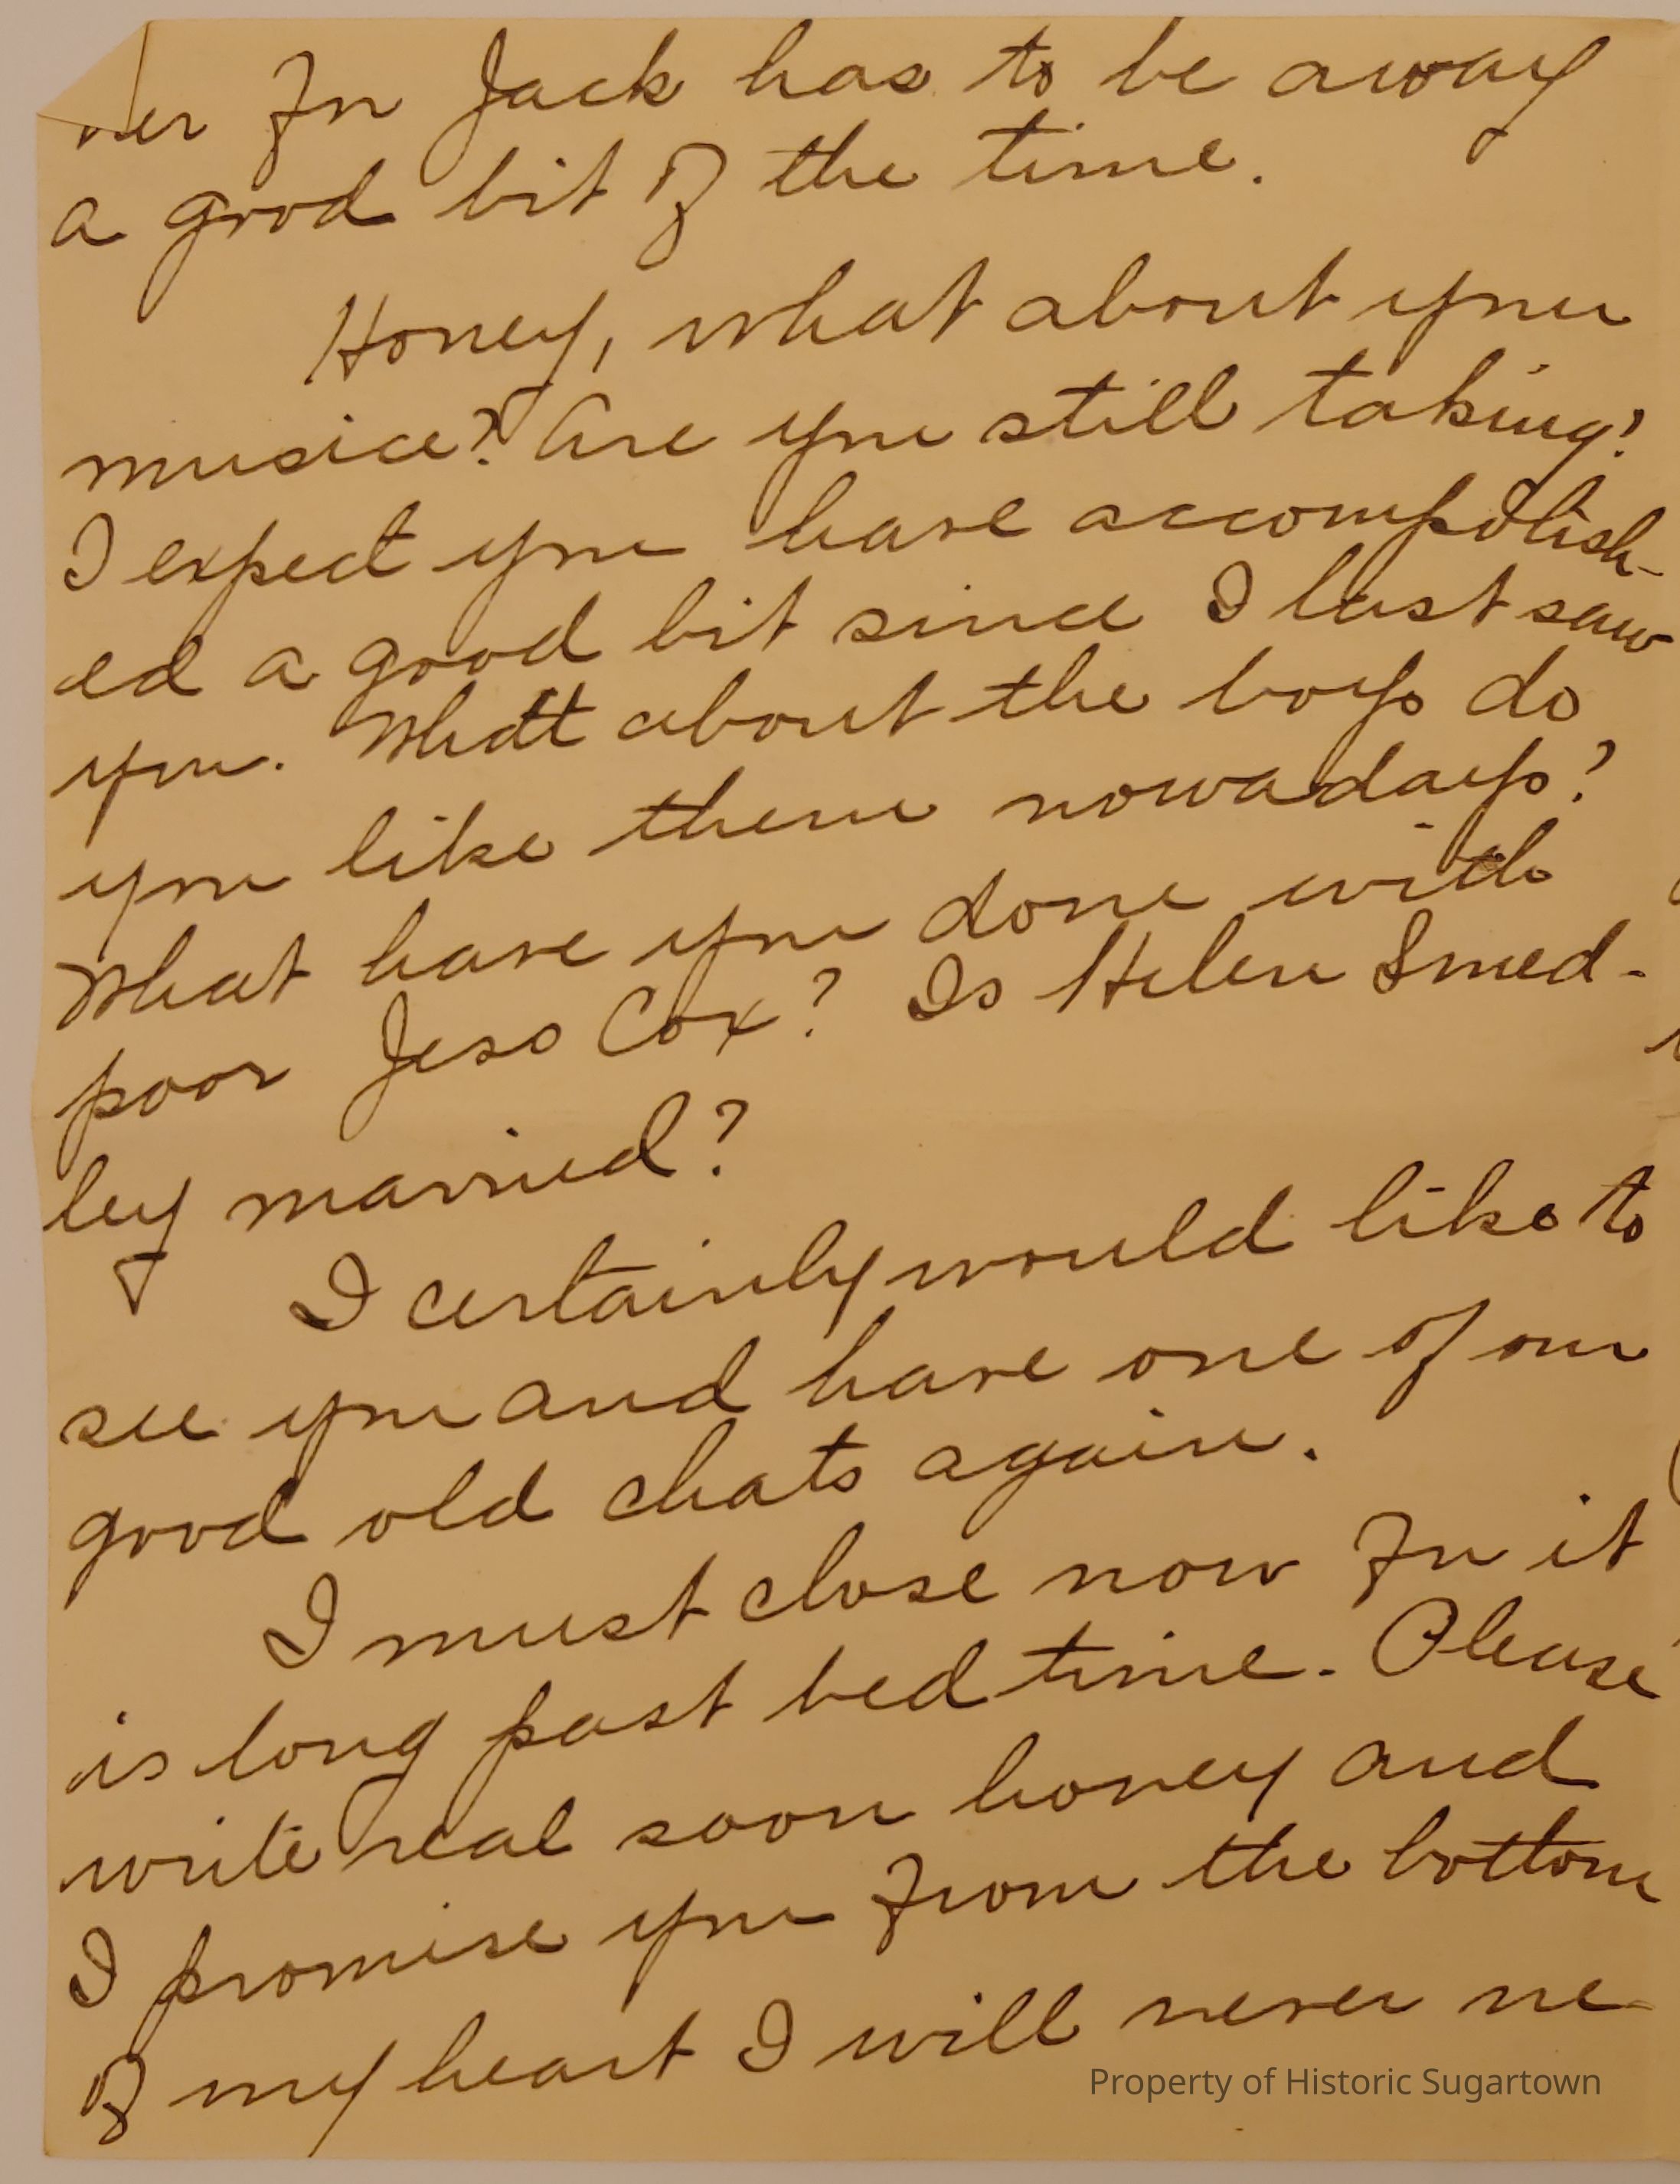 her for Jack has to be away
a good bit of the time.
Honey, what about your
music? Are you still taking?
I expect you have accomplish-
ed a good bit since I last saw
you. What about the boys do
you like them nowadays?
What have you done with
poor Jess Cox? Is Helen Smed-
ley married?
I certainly would like to
see you and have one of our
good old chats again.
I must close now for it
is long past bedtime. Please
write real soon honey and
I promise you from the bottom
of my heart I will never ne-
Property of Historic Sugartown